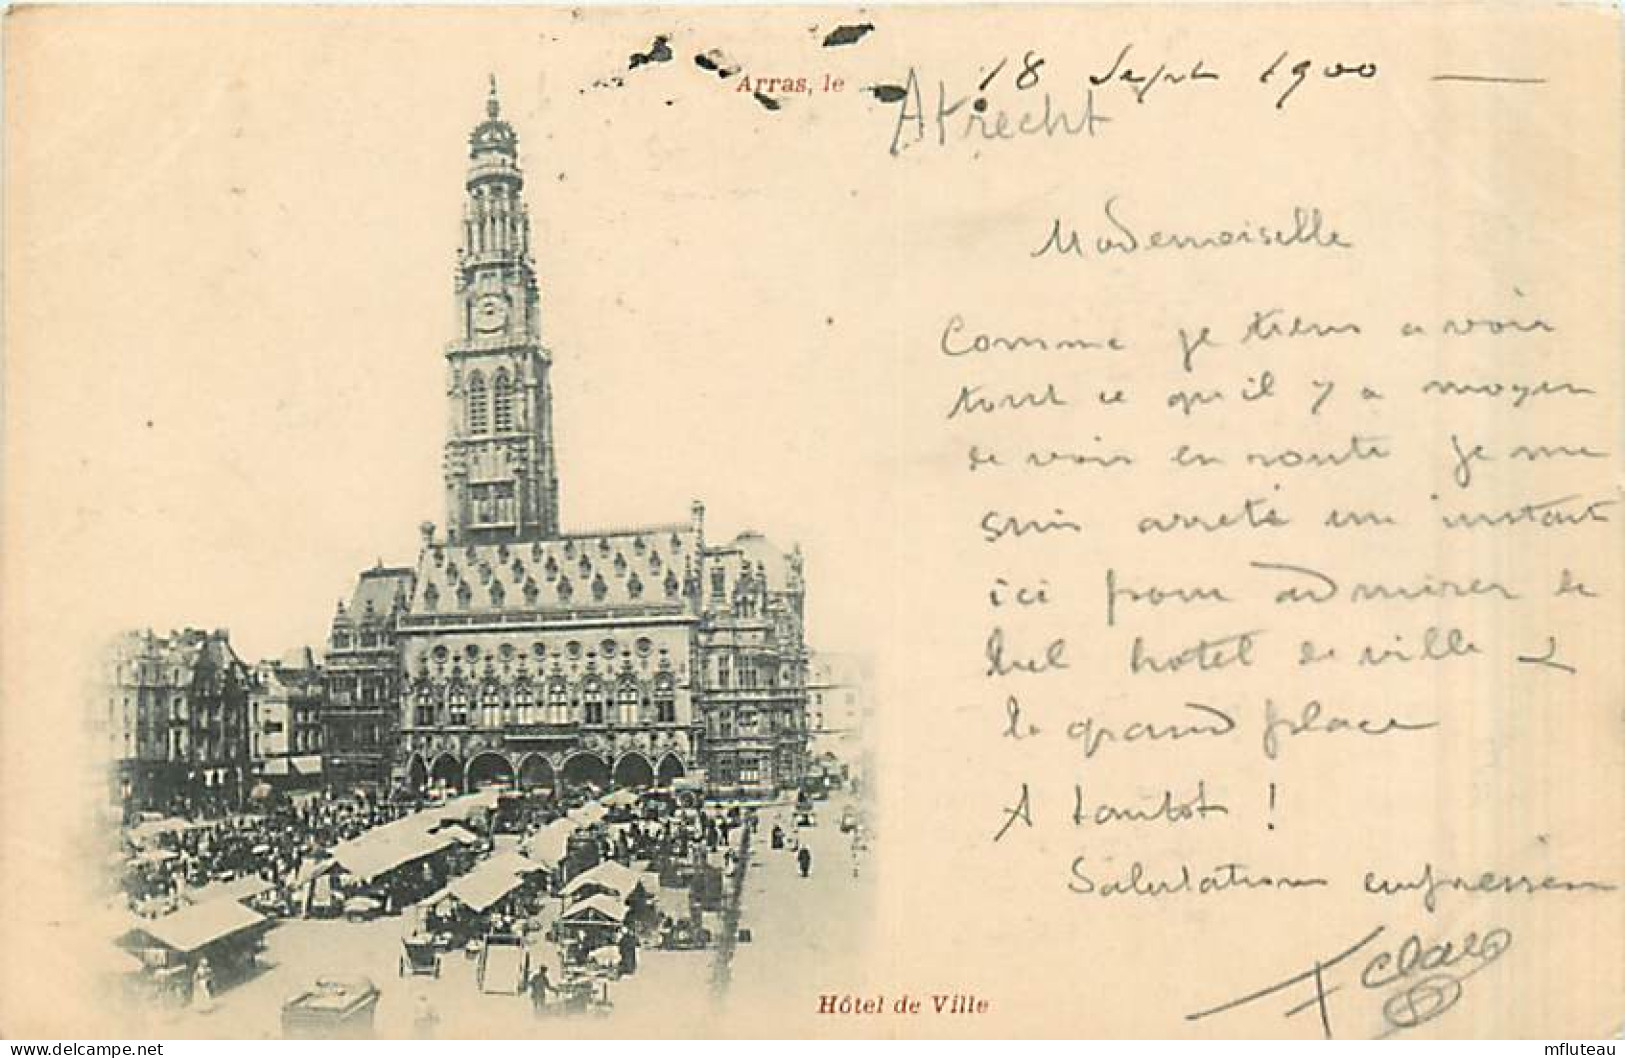 Arras, le 18 Sept 1900
Atrecht
Mademoiselle
Comme je tiens a voir
tout ce qu'il y a moyen
de voir en route je me
suis arreté un instant
ici pour admirer le
bel hotel de ville &
la grand place
A tantot !
Salutations empressées
Hôtel de Ville
mfluteau